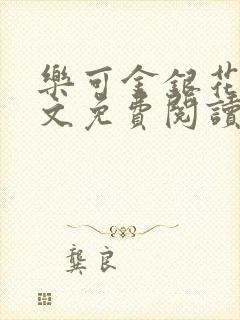 樂可金銀花
文免費閱讀
龔良